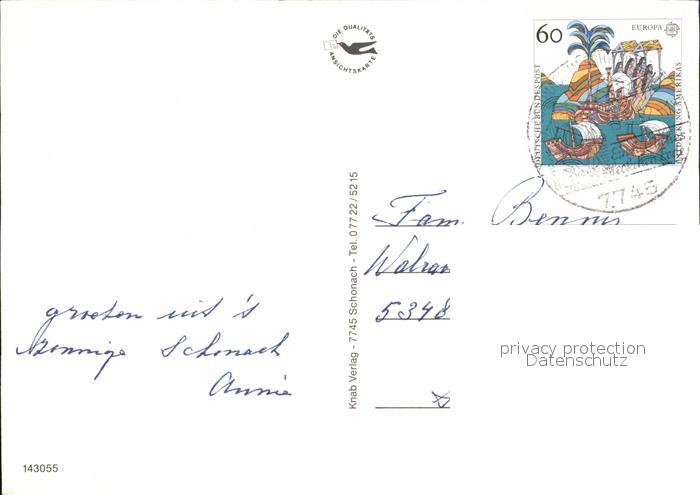 DIE QUALITÄTS
ANSICHTSKARTE
60
EUROPA
DEUTSCHE BUNDESPOST
ENTDECKUNG AMERIKAS
7745
Knab Verlag - 7745 Schonach - Tel. 07722/5215
Fam. Bennis
Walrav
5348
groeten uit 's
zonnige Schonach
Annie
privacy protection
Datenschutz
143055